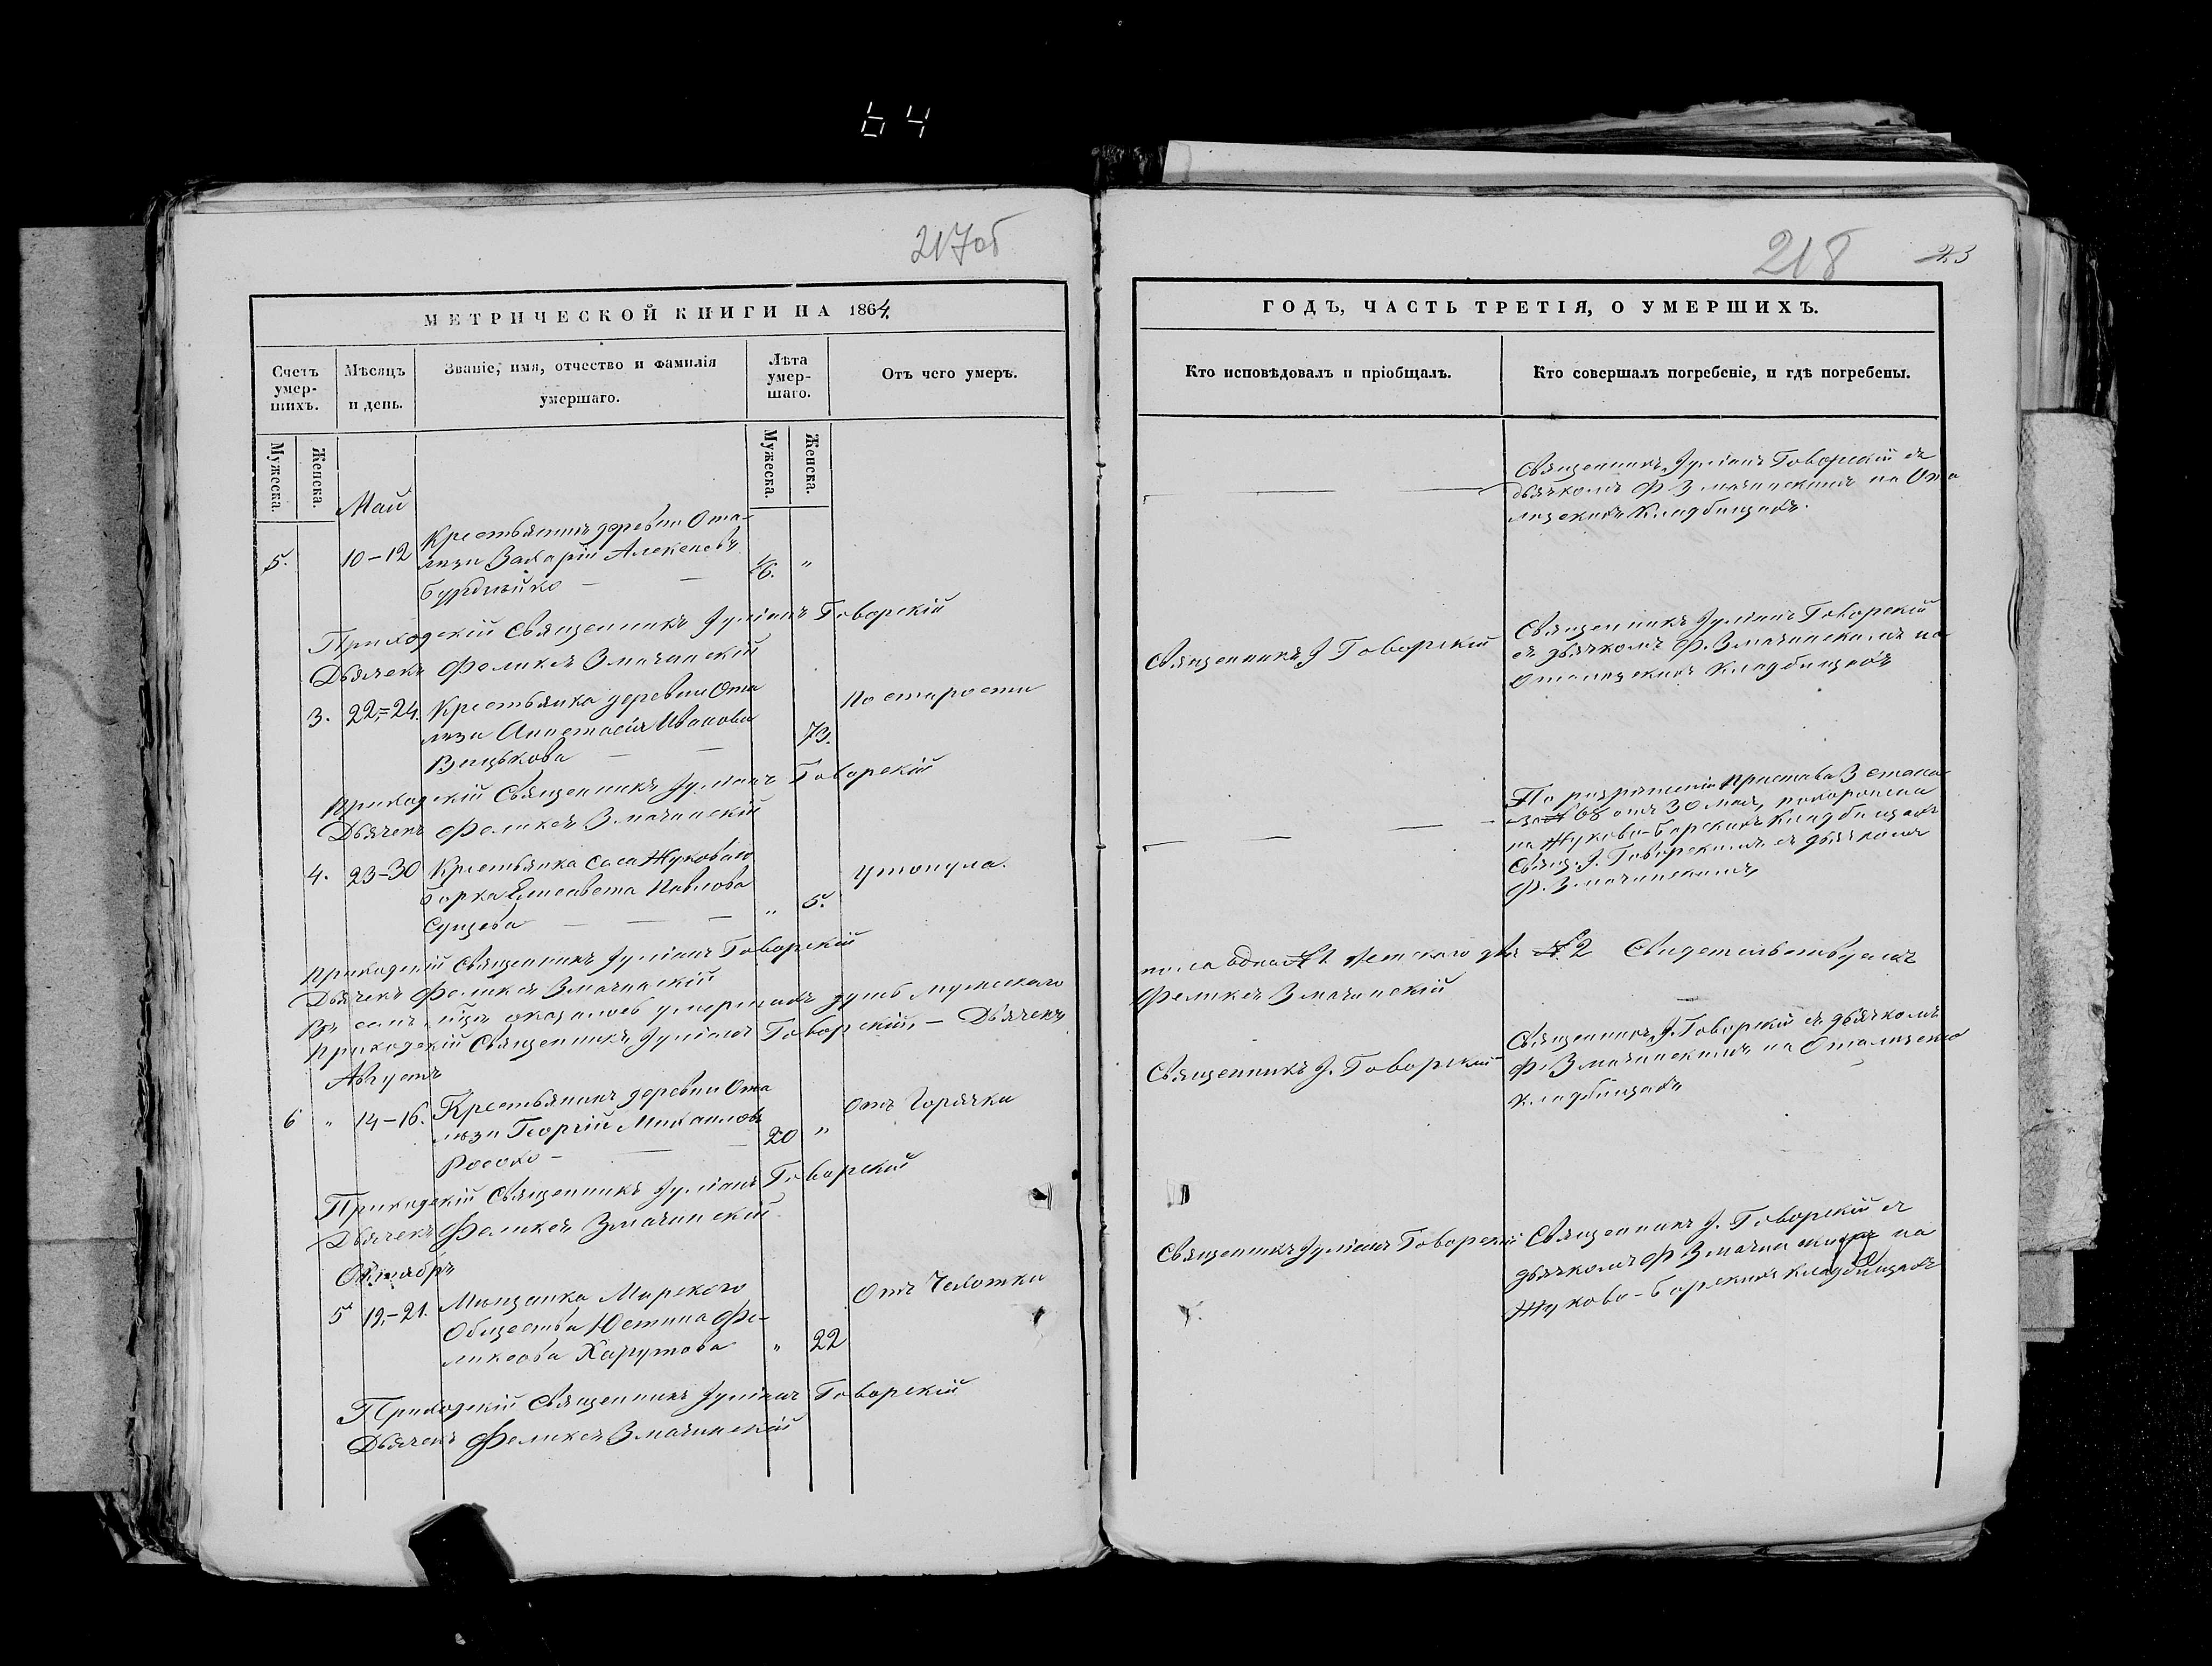 64
217об
МЕТРИЧЕСКОЙ КНИГИ НА 1864
Счетъ умер-шихъ.
Мѣсяцъ и день.
Званіе, имя, отчество и фамилія умершаго.
Лѣта умер-шаго.
Отъ чего умеръ.
Мужеска.
Женска.
Мужеска.
Женска.
Май
5. 10-12 Крестьянинъ деревни Ота-
лези Захарій Алексѣевъ 
 — —
Приходскій Священникъ Іуліанъ Говорскій
Дьячекъ Феликсъ Змачинскій
3. 22=24. Крестьянка деревни Ота 73. по старости
лези Анастасія Иванова
Вицькова — —
Приходскій Священникъ Іуліанъ Говорскій
Дьячекъ Феликсъ Змачинскій
4. 23-30 Крестьянка села Жуковаго „ 5. утонула.
борка Елисавета Павлова
Сущева — —
Приходскій Священникъ Іуліанъ Говорскій
Дьячекъ Феликсъ Змачинскій
Въ семъ оказалось умершихъ душъ мужескаго
Приходскій Священникъ Іуліанъ Говорскій, — Дьячекъ
Августъ
6 „ 14-16. Крестьянинъ деревни Ота 20 „ отъ Горячки
лези Георгій Михаиловъ
Росохо — — —
Приходскій Священникъ Іуліанъ Говорскій
Дьячекъ Феликсъ Змачинскій
Октябрь
5 19-21. Мѣщанка Мирскаго „ 22 отъ Чахотки
Общества Юстина Фе-
ликсова Харутова
Приходскій Священникъ Іуліанъ Говорскій
Дьячекъ Феликсъ Змачинскій
218
ГОДЪ, ЧАСТЬ ТРЕТІЯ, О УМЕРШИХЪ.
Кто исповѣдовалъ и пріобщалъ.
Кто совершалъ погребеніе, и гдѣ погребены.
Священникъ Іуліанъ Говорскій съ
дьячкомъ Ф Змачинскимъ на Ота
лезскихъ Кладбищахъ.
Священникъ І Говорскій
Священникъ Іуліанъ Говорскій
съ дьячкомъ Ф. Змачинскимъ на
Оталезскихъ Кладбищахъ
По разрѣшенію Пристава 3 стана
за № 68 отъ 30 мая, похоронена
на Жуково-Борскихъ Кладбищахъ
Свящ. І. Говорскимъ съ дьячкомъ
Ф. Змачинскимъ,
пола одна № 1 женскаго двѣ № 2 Свидетельствуемъ
Феликсъ Змачинскій
Священникъ І. Говорскій
Священникъ І. Говорскій съ дьячкомъ
Ф Змачинскимъ на
кладбищахъ
Священникъ Іуліанъ Говорскій
Священникъ І. Говорскій съ
дьячкомъ Ф Змачинскимъ на
Жуково-борскихъ кладбищахъ